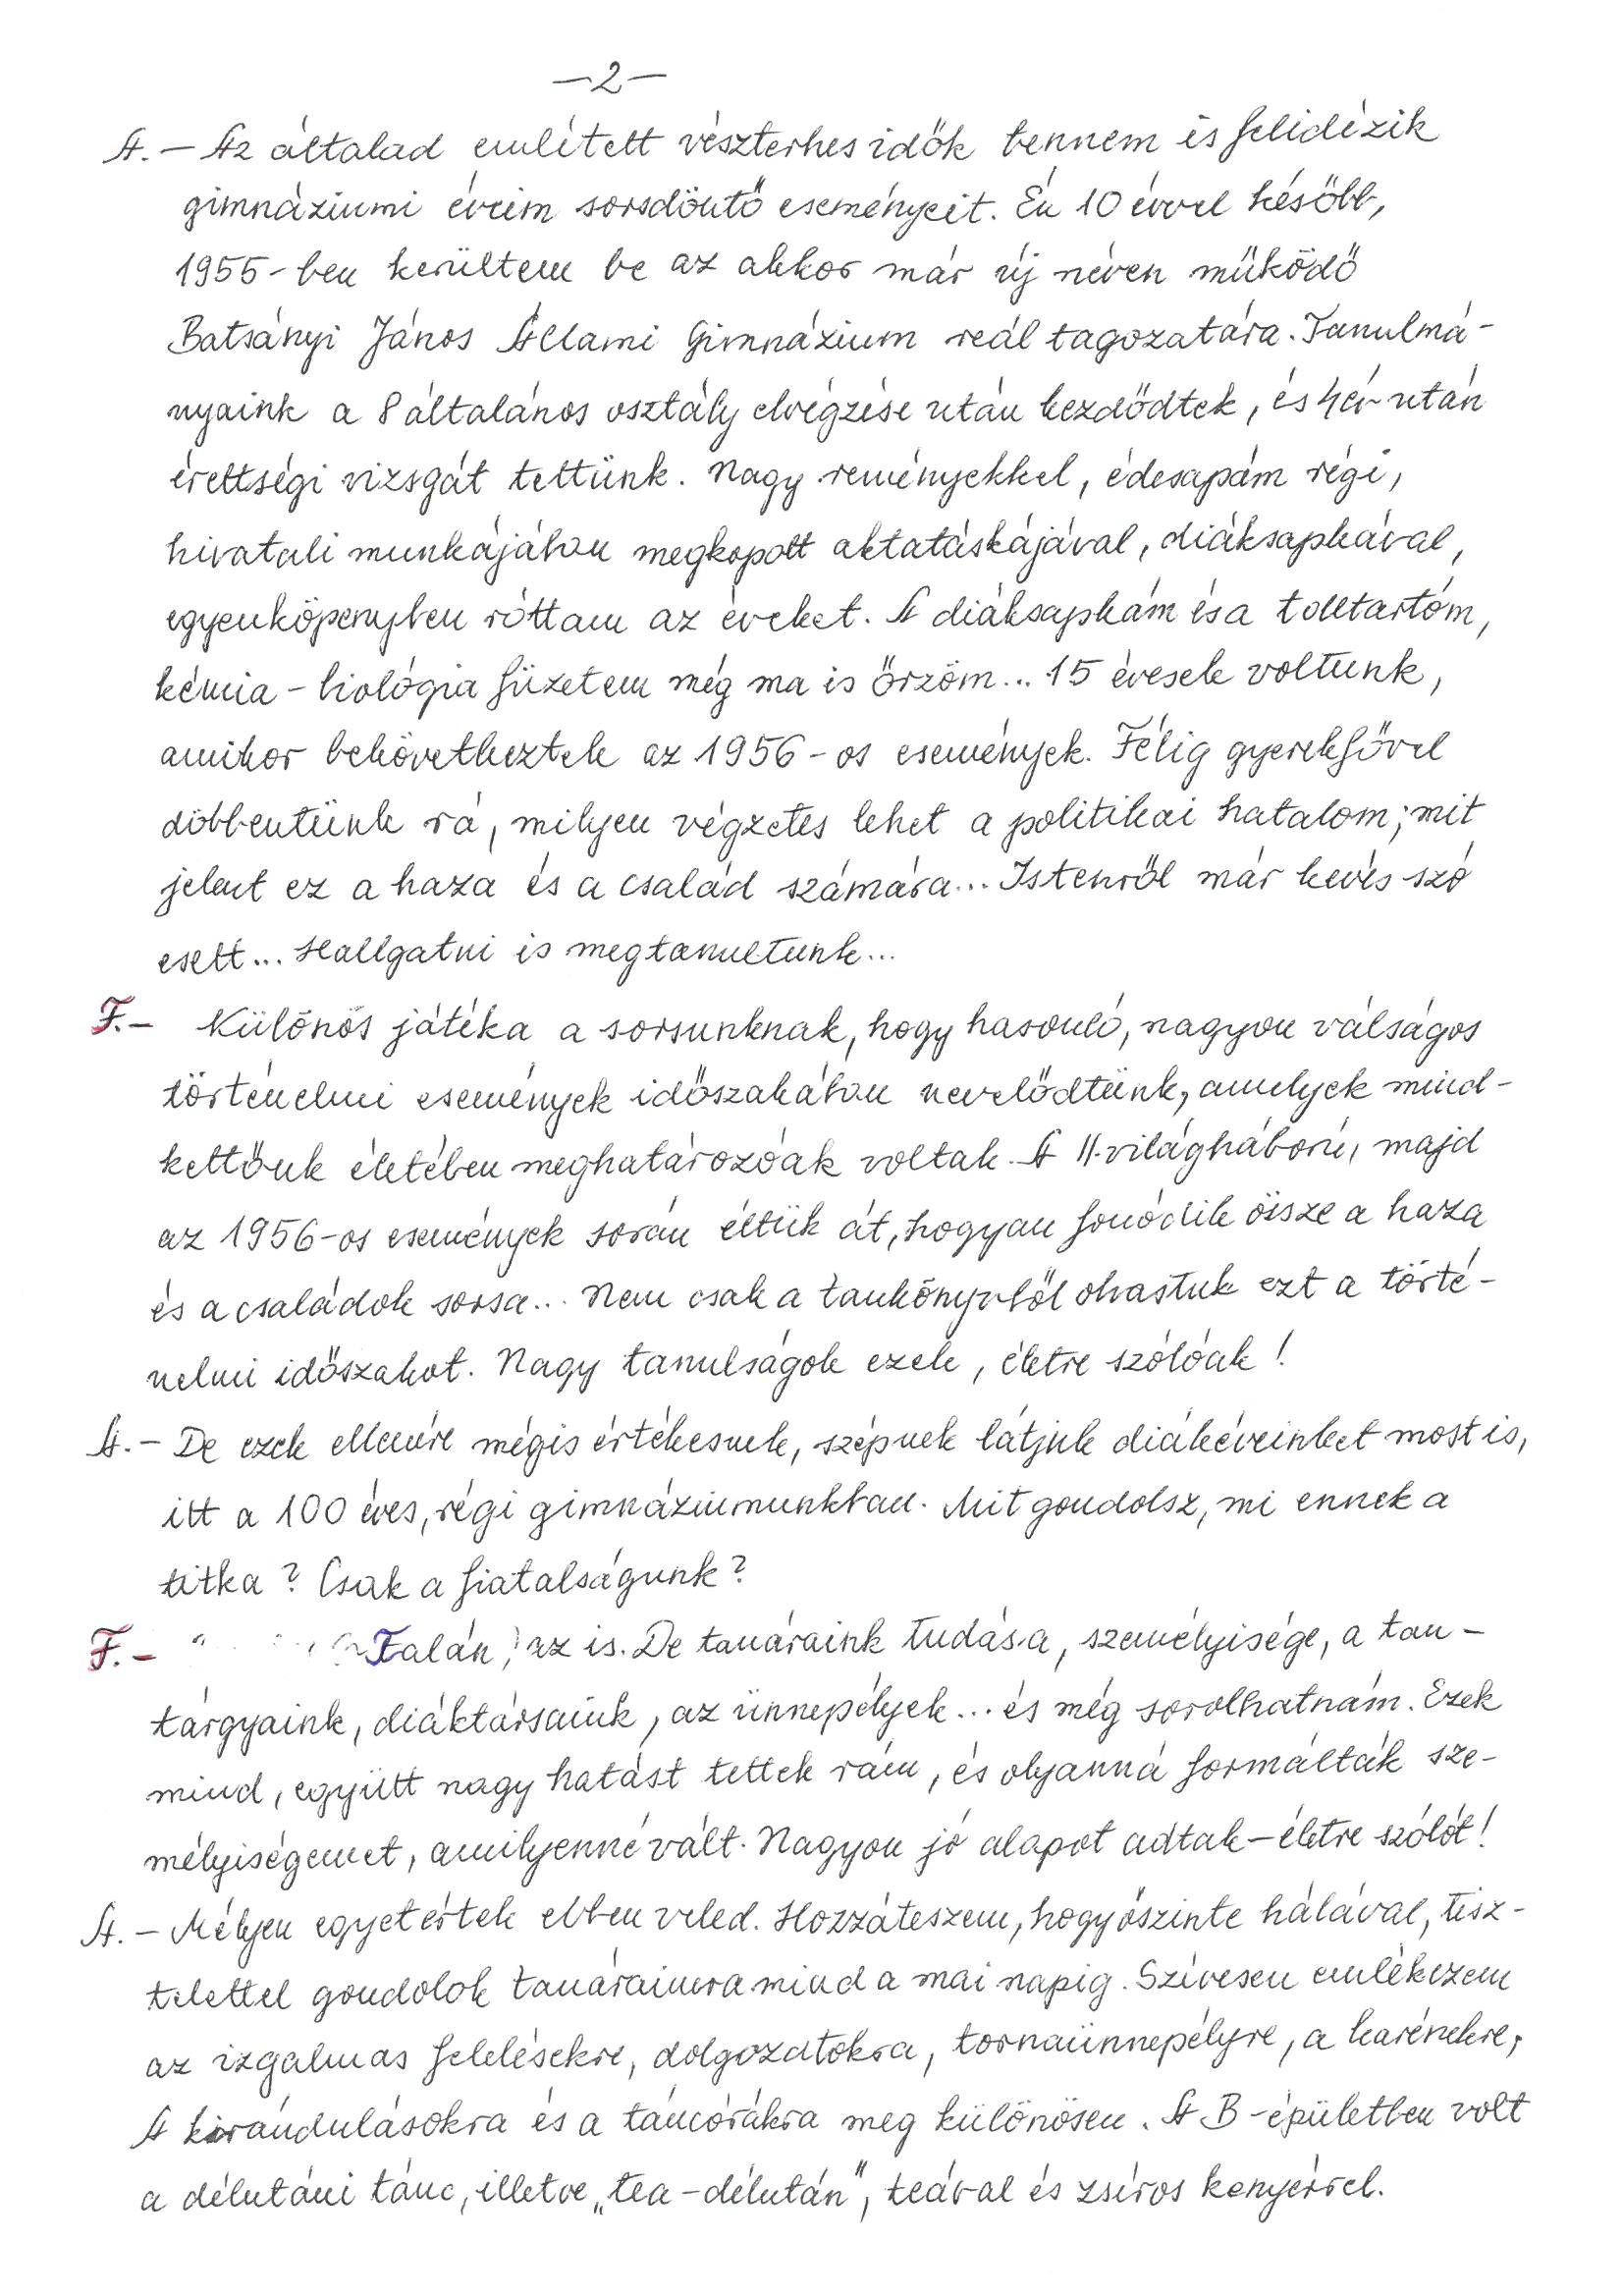 —2—
A. — Az általad említett vészterhes idők bennem is felidézik
gimnáziumi éveim sorsdöntő eseményeit. Én 10 évvel később,
1955-ben kerültem be az akkor már új néven működő
Batsányi János Állami Gimnázium reál tagozatára. Tanulmá-
nyaink a 8 általános osztály elvégzése után kezdődtek, és 4 év után
érettségi vizsgát tettünk. Nagy reményekkel, édesapám régi,
hivatali munkájában megkopott aktatáskájával, diáksapkával,
egyenköpenyben róttam az éveket. A diáksapkám és a tolltartóm,
kémia - biológia füzetem még ma is őrzöm... 15 évesek voltunk,
amikor bekövetkeztek az 1956-os események. Félig gyerekfővel
döbbentünk rá, milyen végzetes lehet a politikai hatalom; mit
jelent ez a haza és a család számára... Istenről már kevés szó
esett... Hallgatni is megtanultunk...
F. — Különös játéka a sorsunknak, hogy hasonló, nagyon válságos
történelmi események időszakában nevelődtünk, amelyek mind-
kettőnk életében meghatározóak voltak. A II. világháború, majd
az 1956-os események során éltük át, hogyan fonódik össze a haza
és a családok sorsa... Nem csak a tankönyvből olvastuk ezt a törté-
nelmi időszakot. Nagy tanulságok ezek, életre szólóak!
A. — De ezek ellenére mégis értékesnek, szépnek látjuk diákéveinket most is,
itt a 100 éves, régi gimnáziumunkban. Mit gondolsz, mi ennek a
titka? Csak a fiatalságunk?
F. — Talán, az is. De tanáraink tudása, személyisége, a tan-
tárgyaink, diáktársaink, az ünnepélyek... és még sorolhatnám. Ezek
mind, együtt nagy hatást tettek rám, és olyanná formálták sze-
mélyiségemet, amilyenné vált. Nagyon jó alapot adtak — életre szólót!
A. — Mélyen egyetértek ebben veled. Hozzáteszem, hogy őszinte hálával, tisz-
telettel gondolok tanáraimra mind a mai napig. Szívesen emlékezem
az izgalmas felelésekre, dolgozatokra, tornaünnepélyre, a karénekre,
A kirándulásokra és a táncórákra meg különösen. A B-épületben volt
a délutáni tánc, illetve „tea-délután", teával és zsíros kenyérrel.